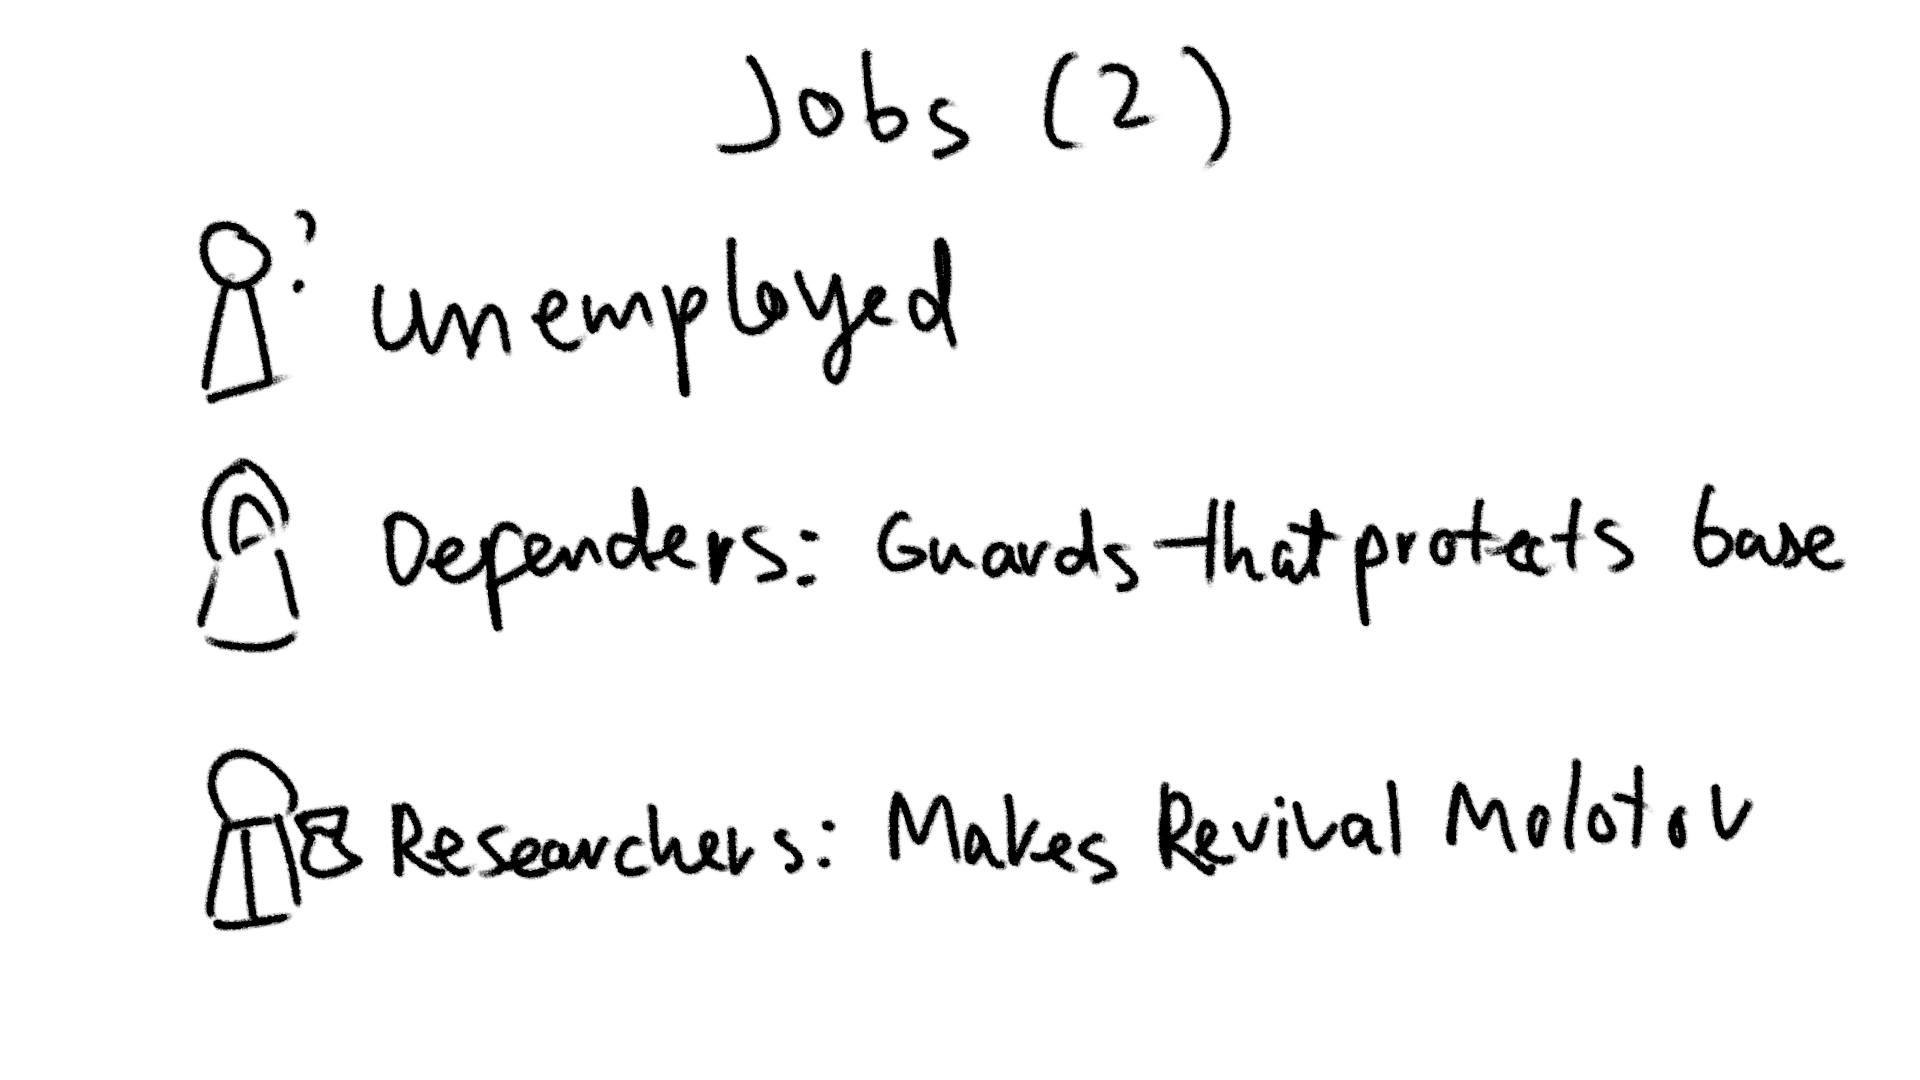 Jobs (2)
?
unemployed
Defenders: Guards that protects base
Researchers: Makes Revival Molotov